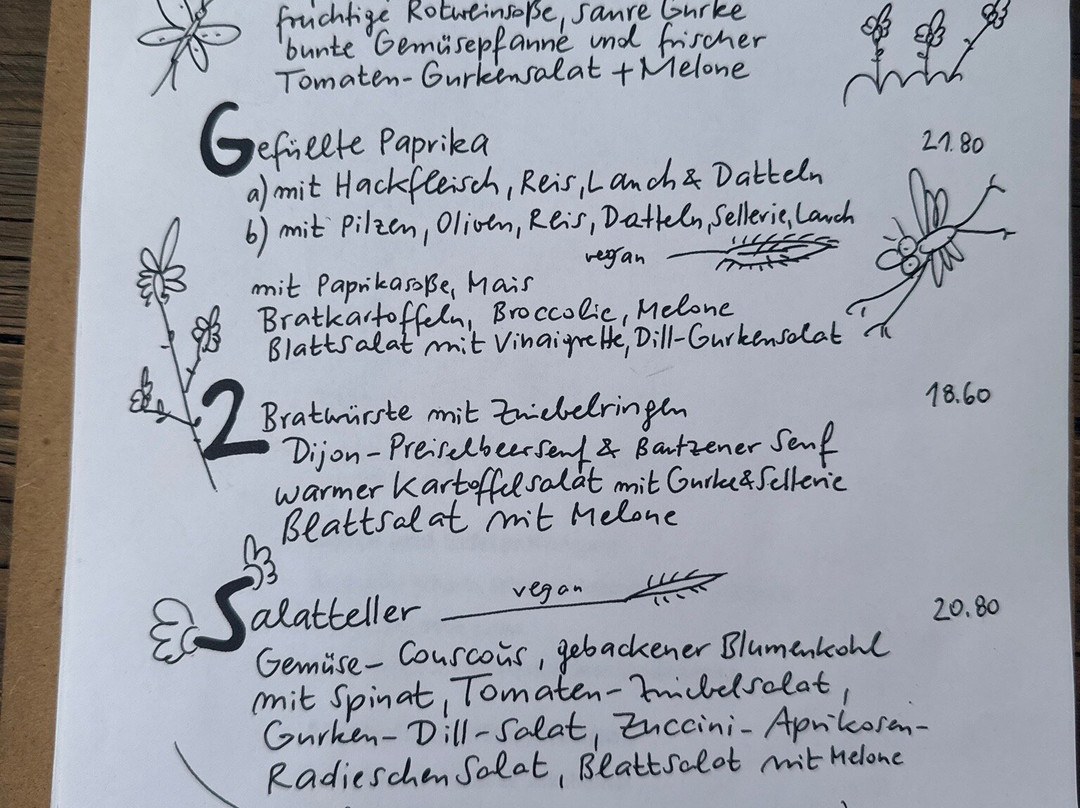 fruchtige Rotweinsoße, saure Gurke
bunte Gemüsepfanne und frischer
Tomaten-Gurkensalat + Melone
Gefüllte Paprika 21.80
a) mit Hackfleisch, Reis, Lauch & Datteln
b) mit Pilzen, Oliven, Reis, Datteln, Sellerie, Lauch
vegan
mit Paprikasoße, Mais
Bratkartoffeln, Broccolie, Melone
Blattsalat mit Vinaigrette, Dill-Gurkensalat
2 Bratwürste mit Zwiebelringen 18.60
Dijon-Preiselbeersenf & Bautzener Senf
warmer Kartoffelsalat mit Gurke & Sellerie
Blattsalat mit Melone
Salatteller vegan 20.80
Gemüse-Couscous, gebackener Blumenkohl
mit Spinat, Tomaten-Zwiebelsalat,
Gurken-Dill-Salat, Zuccini-Aprikosen-
Radieschen Salat, Blattsalat mit Melone